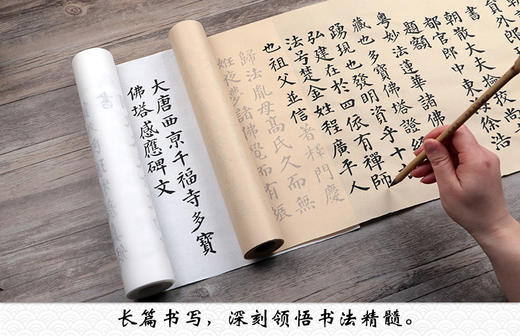 員外郎
書
朝散大夫撿挍
都官郎中東海徐浩
題額
粵妙法蓮華諸佛
藏也多寶佛塔證經
踴現也發明資乎十
弘建在於四依有禪師
法号楚金姓程廣平人
也祖父並信著釋門慶
歸法胤母高氏久而無
姙夜夢諸佛覺而有娠
大唐西京千福寺多寶
佛塔感應碑文
长篇书写，深刻领悟书法精髓。